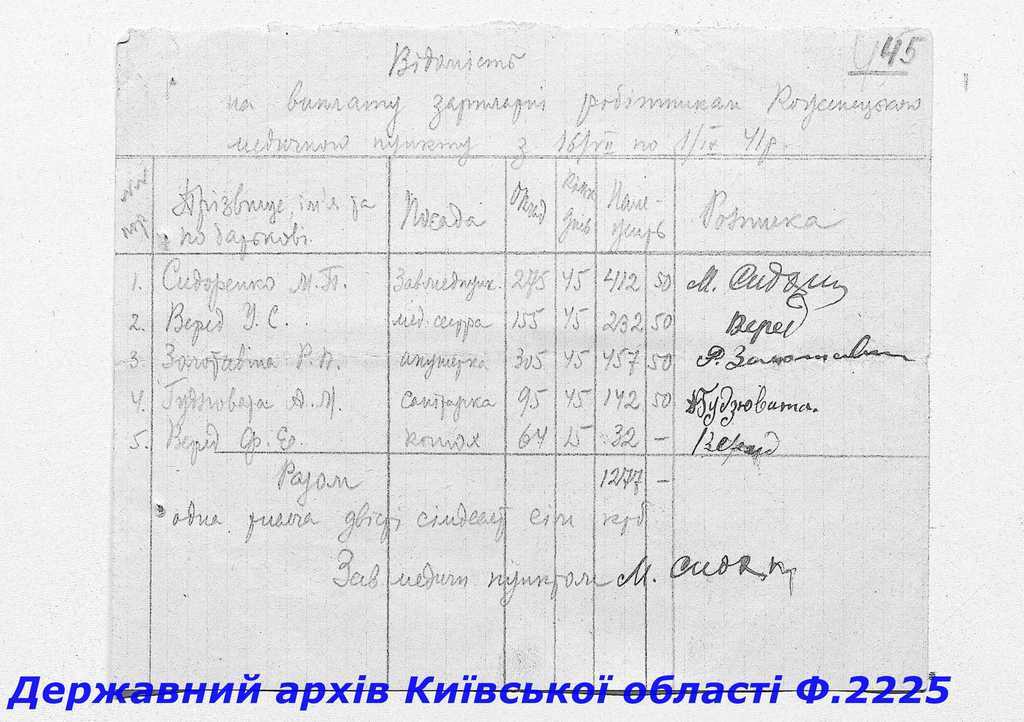 45
Відомість
на виплату зарплатні робітникам
медичного пункту з 16/VII по 1/IX 41р.
№№ пор Прізвище, ім'я та по батькові Посада Оклад Кільк днів Розписка
1. Сидоренко М.П. Завмедпунк. 275 45 412 50 М. Сидор
2. Веред У.С. мед. сестра 155 45 232 50 Веред
3. Р.П. акушерка 305 45 457 50 Р.
4. А.М. санітарка 95 45 142 50 Гудзювата.
5. Веред Ф.Е. конюх 64 15 32 — Веред
Разом 1277 —
одна тисяча двісті сімдесят сім крб
Зав медичн пунктом М. Сидор
Державний архів Київської області Ф.2225